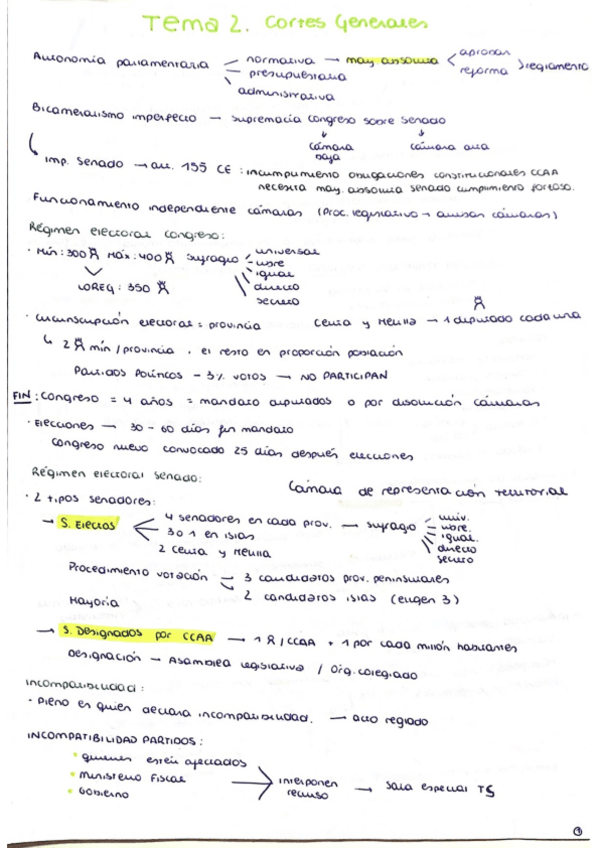 Tema 2. Cortes Generales
Autonomía parlamentaria — normativa → may absoluta < aprobar > reglamento
reforma
— presupuestaria
administrativa
Bicameralismo imperfecto — supremacía congreso sobre senado
cámara baja
cámara alta
Imp. Senado → art. 155 CE : incumplimiento obligaciones constitucionales CCAA
necesita may. absoluta senado cumplimiento forzoso.
Funcionamiento independiente cámaras (Proc. legislativo → ambas cámaras)
Régimen electoral congreso:
· Mín: 300 Máx: 400 sufragio — universal
libre
igual
directo
secreto
LOREG: 350
· circunscripción electoral = provincia Ceuta y Melilla → 1 diputado cada una
2 mín / provincia, el resto en proporción población
Partidos Políticos - 3% votos → NO PARTICIPAN
FIN: Congreso = 4 años = mandato diputados o por disolución cámaras
· Elecciones → 30 - 60 días fin mandato
Congreso nuevo convocado 25 días después elecciones
Régimen electoral senado: Cámara de representación territorial
· 2 tipos senadores:
→ S. Electos — 4 senadores en cada prov. → sufragio — univ.
libre.
igual.
directo
secreto
3 o 1 en islas
2 Ceuta y Melilla
Procedimiento votación — 3 candidatos prov. peninsulares
2 candidatos islas (eligen 3)
Mayoría
→ S. Designados por CCAA → 1 /CCAA + 1 por cada millón habitantes
Designación — Asamblea legislativa / Org. colegiado
Incompatibilidad:
· Pleno es quien declara incompatibilidad. → acto reglado
INCOMPATIBILIDAD PARTIDOS:
· quienes estén afectados
· Ministerio Fiscal
· Gobierno
interponen recurso → Sala especial TS
1